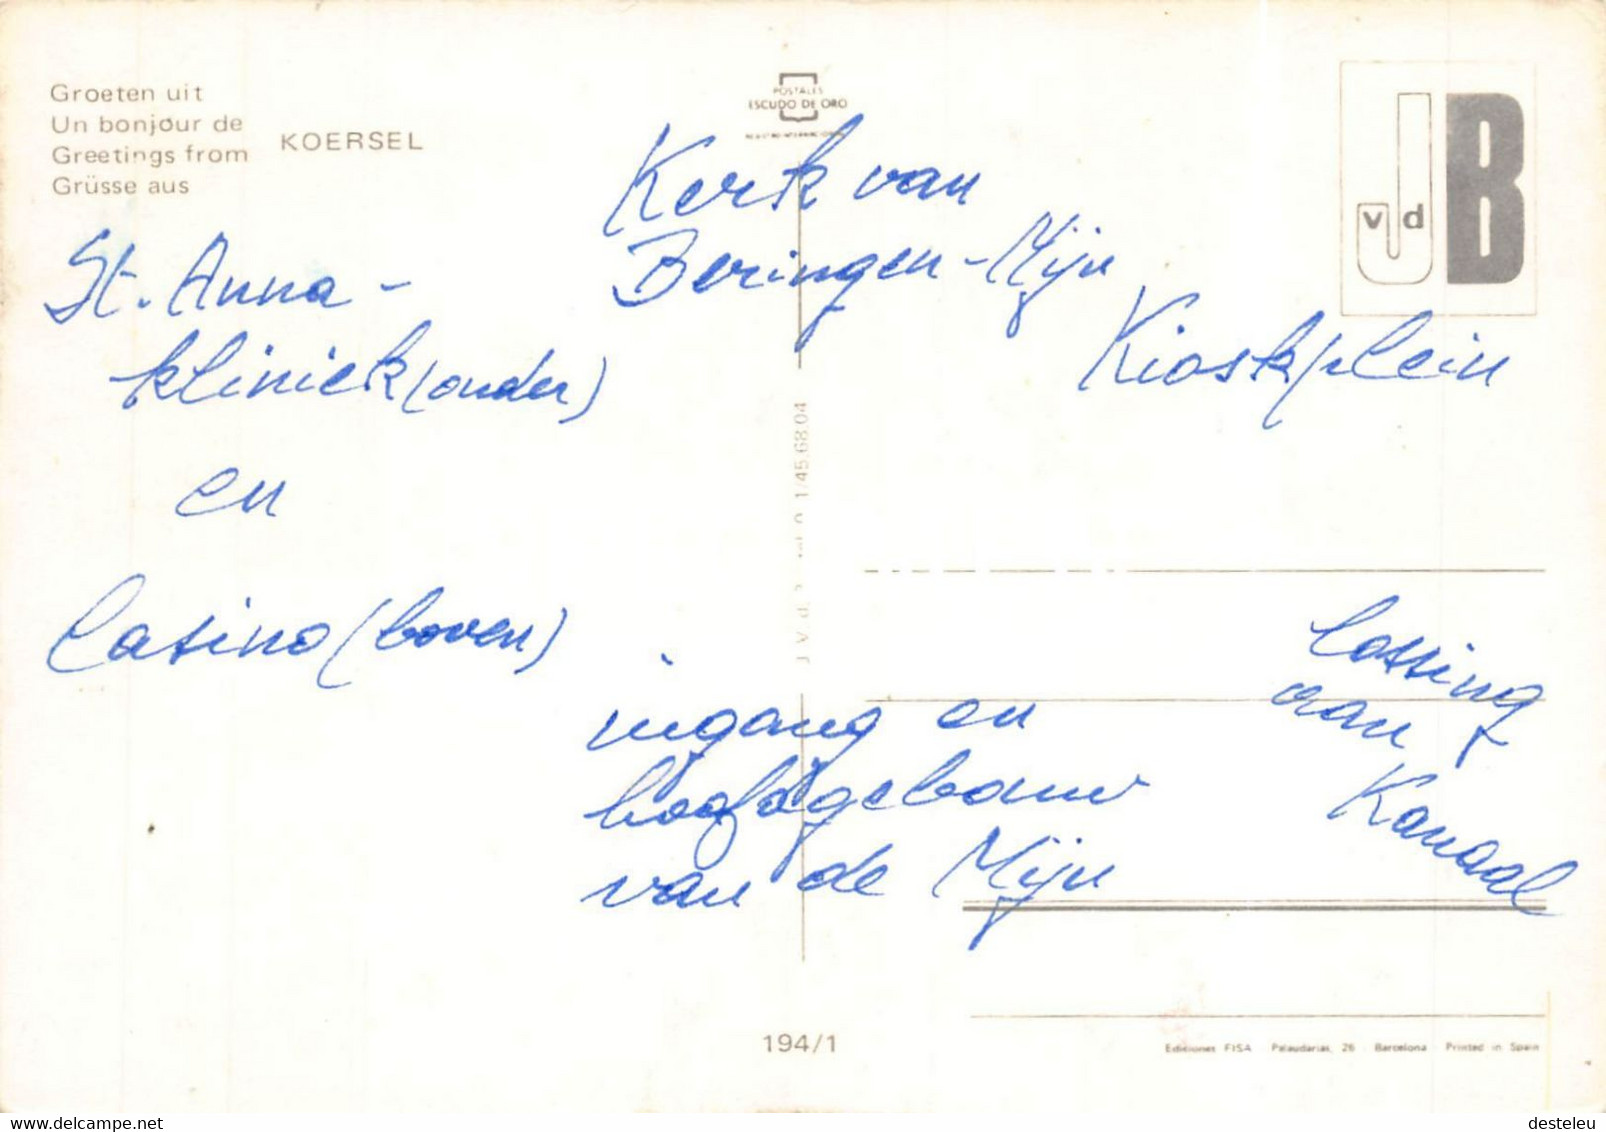 Groeten uit
Un bonjour de
Greetings from
Grüsse aus
KOERSEL
POSTALES
ESCUDO DE ORO
J vd B
Kerk van
Beringen-Mijn
Kioskplein
St. Anna-
kliniek (onder)
en
Casino (boven)
1/45.68.04
ingang en
hoofdgebouw
van de Mijn
lossing
aan
Kanaal
194/1
Ediciones FISA Palaudarias, 26 Barcelona Printed in Spain
www.delcampe.net
desteleu